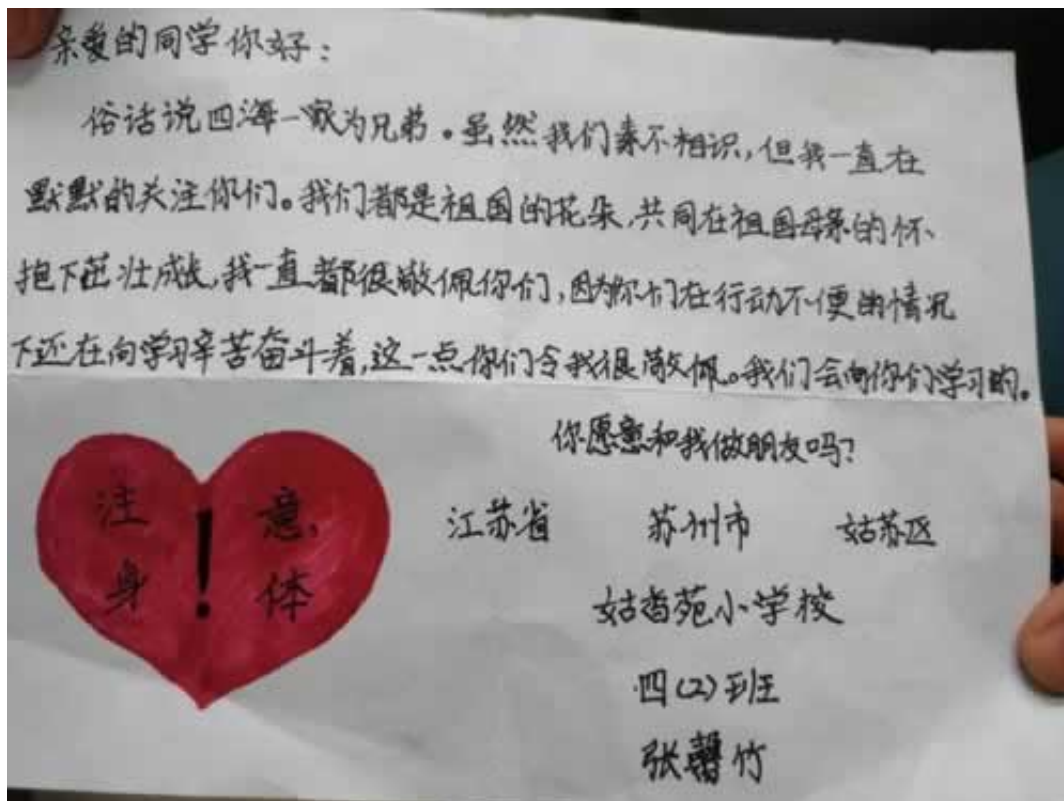 亲爱的同学你好：
俗话说四海一家为兄弟。虽然我们素不相识，但我一直在
默默的关注你们。我们都是祖国的花朵，共同在祖国母亲的怀
抱下茁壮成长，我一直都很敬佩你们，因为你们在行动不便的情况
下还在向学习辛苦奋斗着，这一点你们令我很敬佩。我们会向你们学习的。
你愿意和我做朋友吗？
注意
身！体
江苏省 苏州市 姑苏区
姑香苑小学校
四(2)班
张馨竹